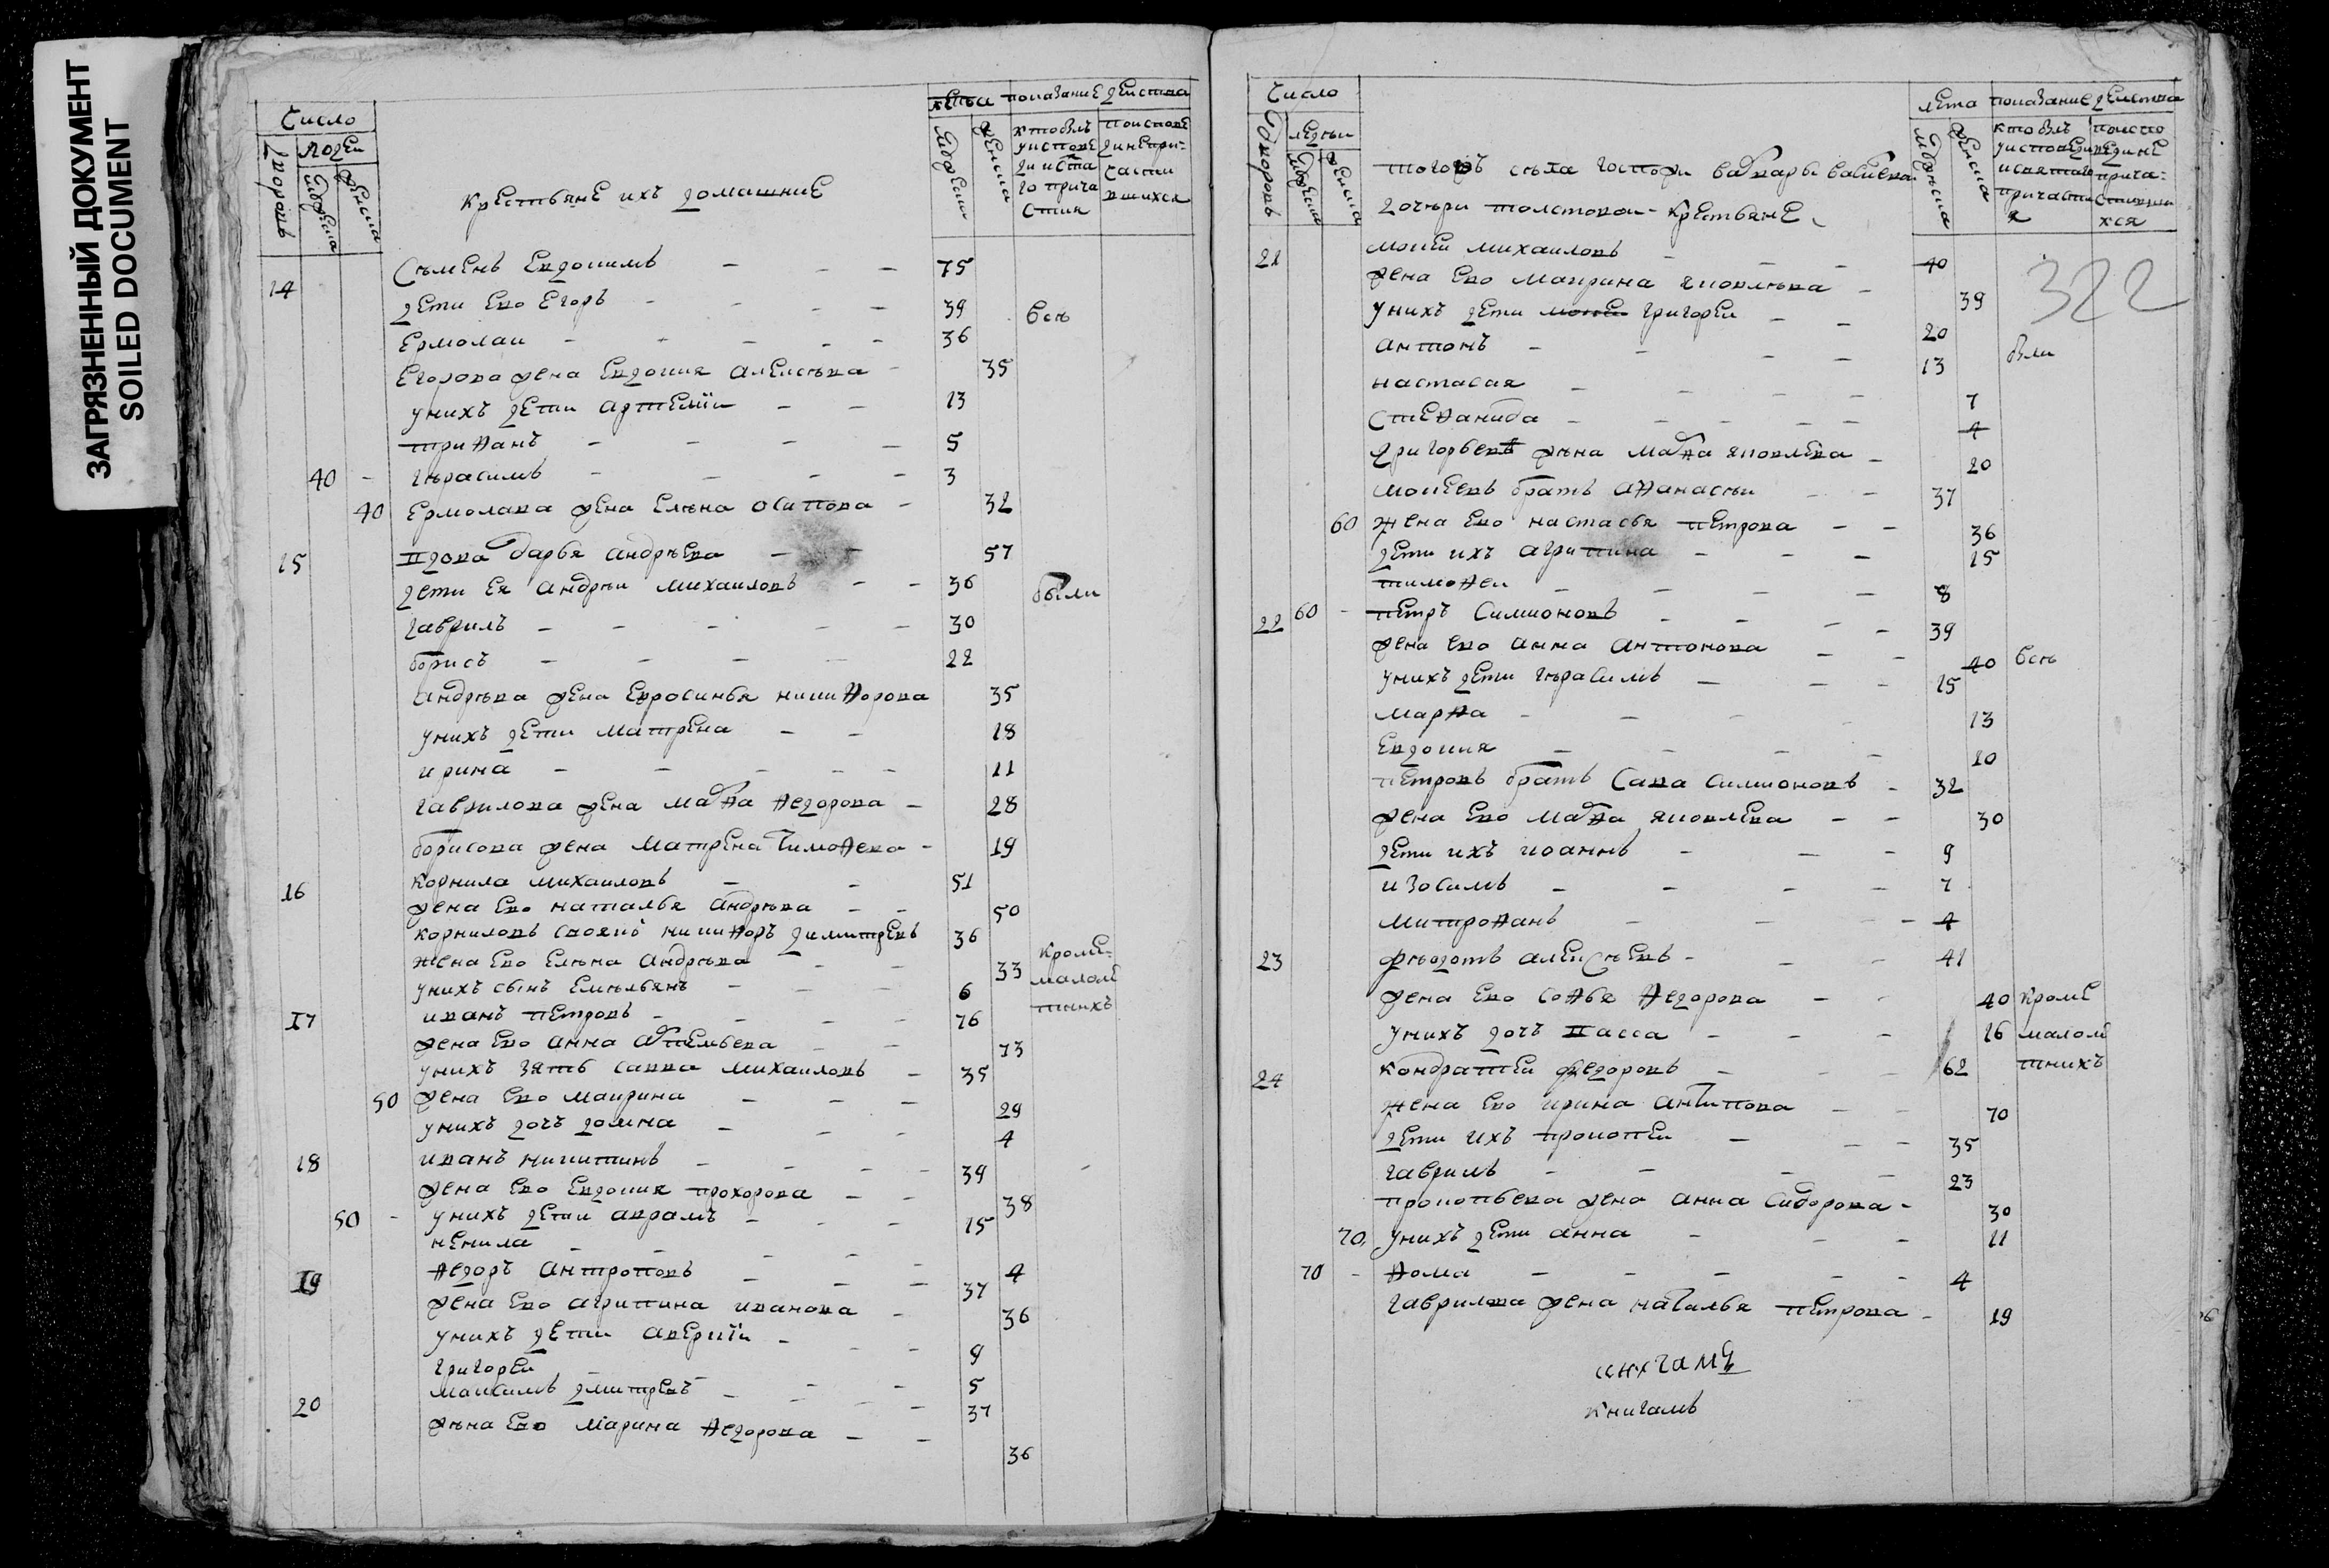 ЗАГРЯЗНЕННЫЙ ДОКУМЕНТ
SOILED DOCUMENT
Число
лета показание действа
дворовъ
людеи
мужеска
женска
крестьяне ихъ домашние
14 Сѣменъ Евдокимъ 75
дети ево Егоръ 39 всѣ
Ермолаи 36
Егорова жена Евдокия алексѣева 35
унихъ дети артемїи 13
трифанъ 5
40 гѣрасимъ 3
40 Ермолаева жена Елѣна осипова 32
15 вдова дарья андрѣева 57
дети ея андрѣи михаиловъ 36 были
гаврилъ 30
борисъ 22
андрѣева жена Евросинья никифорова 35
унихъ дети матрена 18
ирина 11
гаврилова жена мавфа федорова 28
борисова жена матрена тимофева 19
16 корнила михаиловъ 51
жена ево наталья андрѣева 50
корниловъ своякъ никифоръ димитревъ 36
жена ево елѣна андрѣева 33
кроме малолетнихъ
унихъ сынъ емельянъ 6
17 иванъ петровъ 76
жена ево анна 73
унихъ зять савва михаиловъ 35
50 жена ево маврина 29
унихъ дочь домна 4
18 иванъ никитинъ 39
жена ево Евдокия прохорова 38
50 унихъ дети аврамъ 15
ненила 4
19 федоръ антроповъ 37
жена ево агрипина иванова 36
унихъ дети аверкїи 9
григореи 5
20 максимъ дмитревъ 37
жѣна ево марина федорова 36
Число
лета показание действа
дворовъ
людеи
мужеска
женска
тогожъ сѣла госпожи варвары васиевои
дочери толстовои крестьяне
322
21 мокеи михаиловъ 40
жена ево маврина яковлѣва 39
унихъ дети григореи 20
антонъ 13 были
настасая 7
стефанида 4
григорьева жѣна мавфа яковлева 20
мокеевъ братъ афанасѣи 37
60 жена ево настасья петрова 36
дети ихъ агрипина 15
тимофеи 8
22 60 петръ симионовъ 39
жена ево анна антонова 40 всѣ
унихъ дети гѣрасимъ 15
марфа 13
Евдокия 10
петровъ братъ савва симионовъ 32
жена ево мавфа яковлева 30
дети ихъ иоаннъ 9
изосимъ 7
митрофанъ 4
23 фѣодотъ алексѣевъ 41
жена ево софья федорова 40 кроме
унихъ дочь васса 16 малоле
24 кондратеи федоровъ 62 тнихъ
жена ево ирина антипова 70
дети ихъ прокопеи 35
гаврилъ 23
прокопьева жена анна сидорова 30
70 унихъ дети анна 11
70 фома 4
гаврилова жена наталья петрова 19
книгамъ